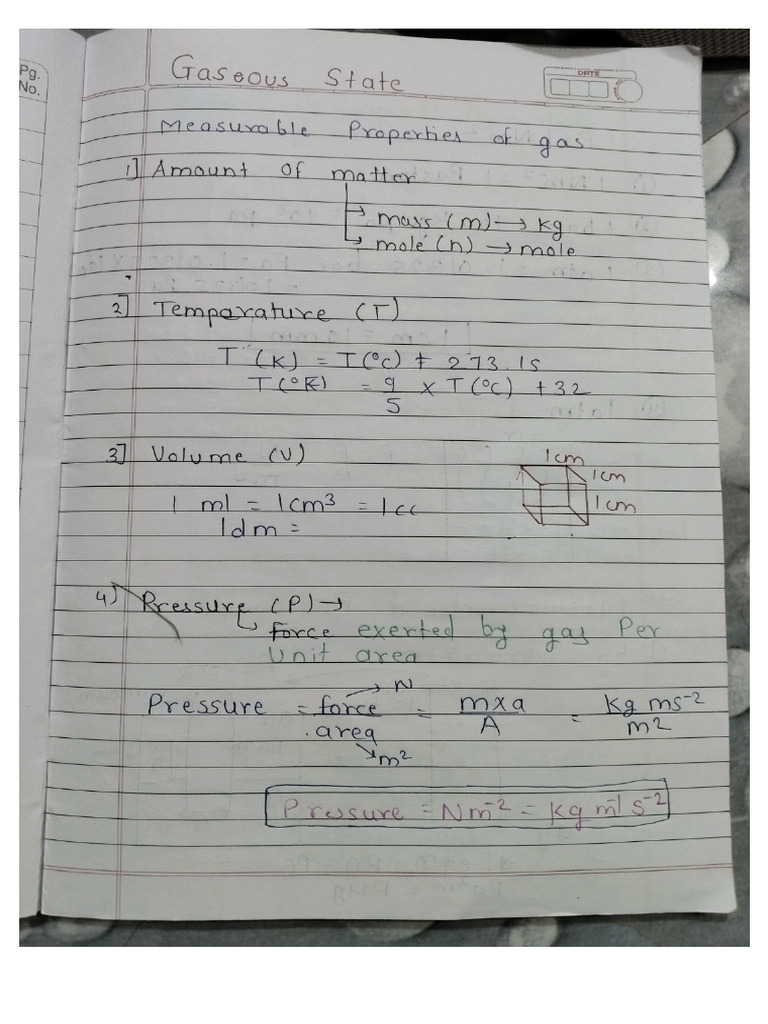 Pg.
No.
Gaseous State
DATE
Measurable Properties of gas
1] Amount of matter
→ mass (m) → kg
→ mole (n) → mole
2] Temparature (T)
T (K) = T(°C) + 273.15
T(°F) = 9/5 × T(°C) + 32
3] Volume (V)
1 ml = 1cm³ = 1cc
1dm =
1cm
1cm
1cm
4) Pressure (P) →
↳ force exerted by gas Per
Unit area
Pressure = force → N / area → m² = m×a / A = Kg ms⁻² / m²
Pressure = Nm⁻² = Kg m⁻¹ s⁻²